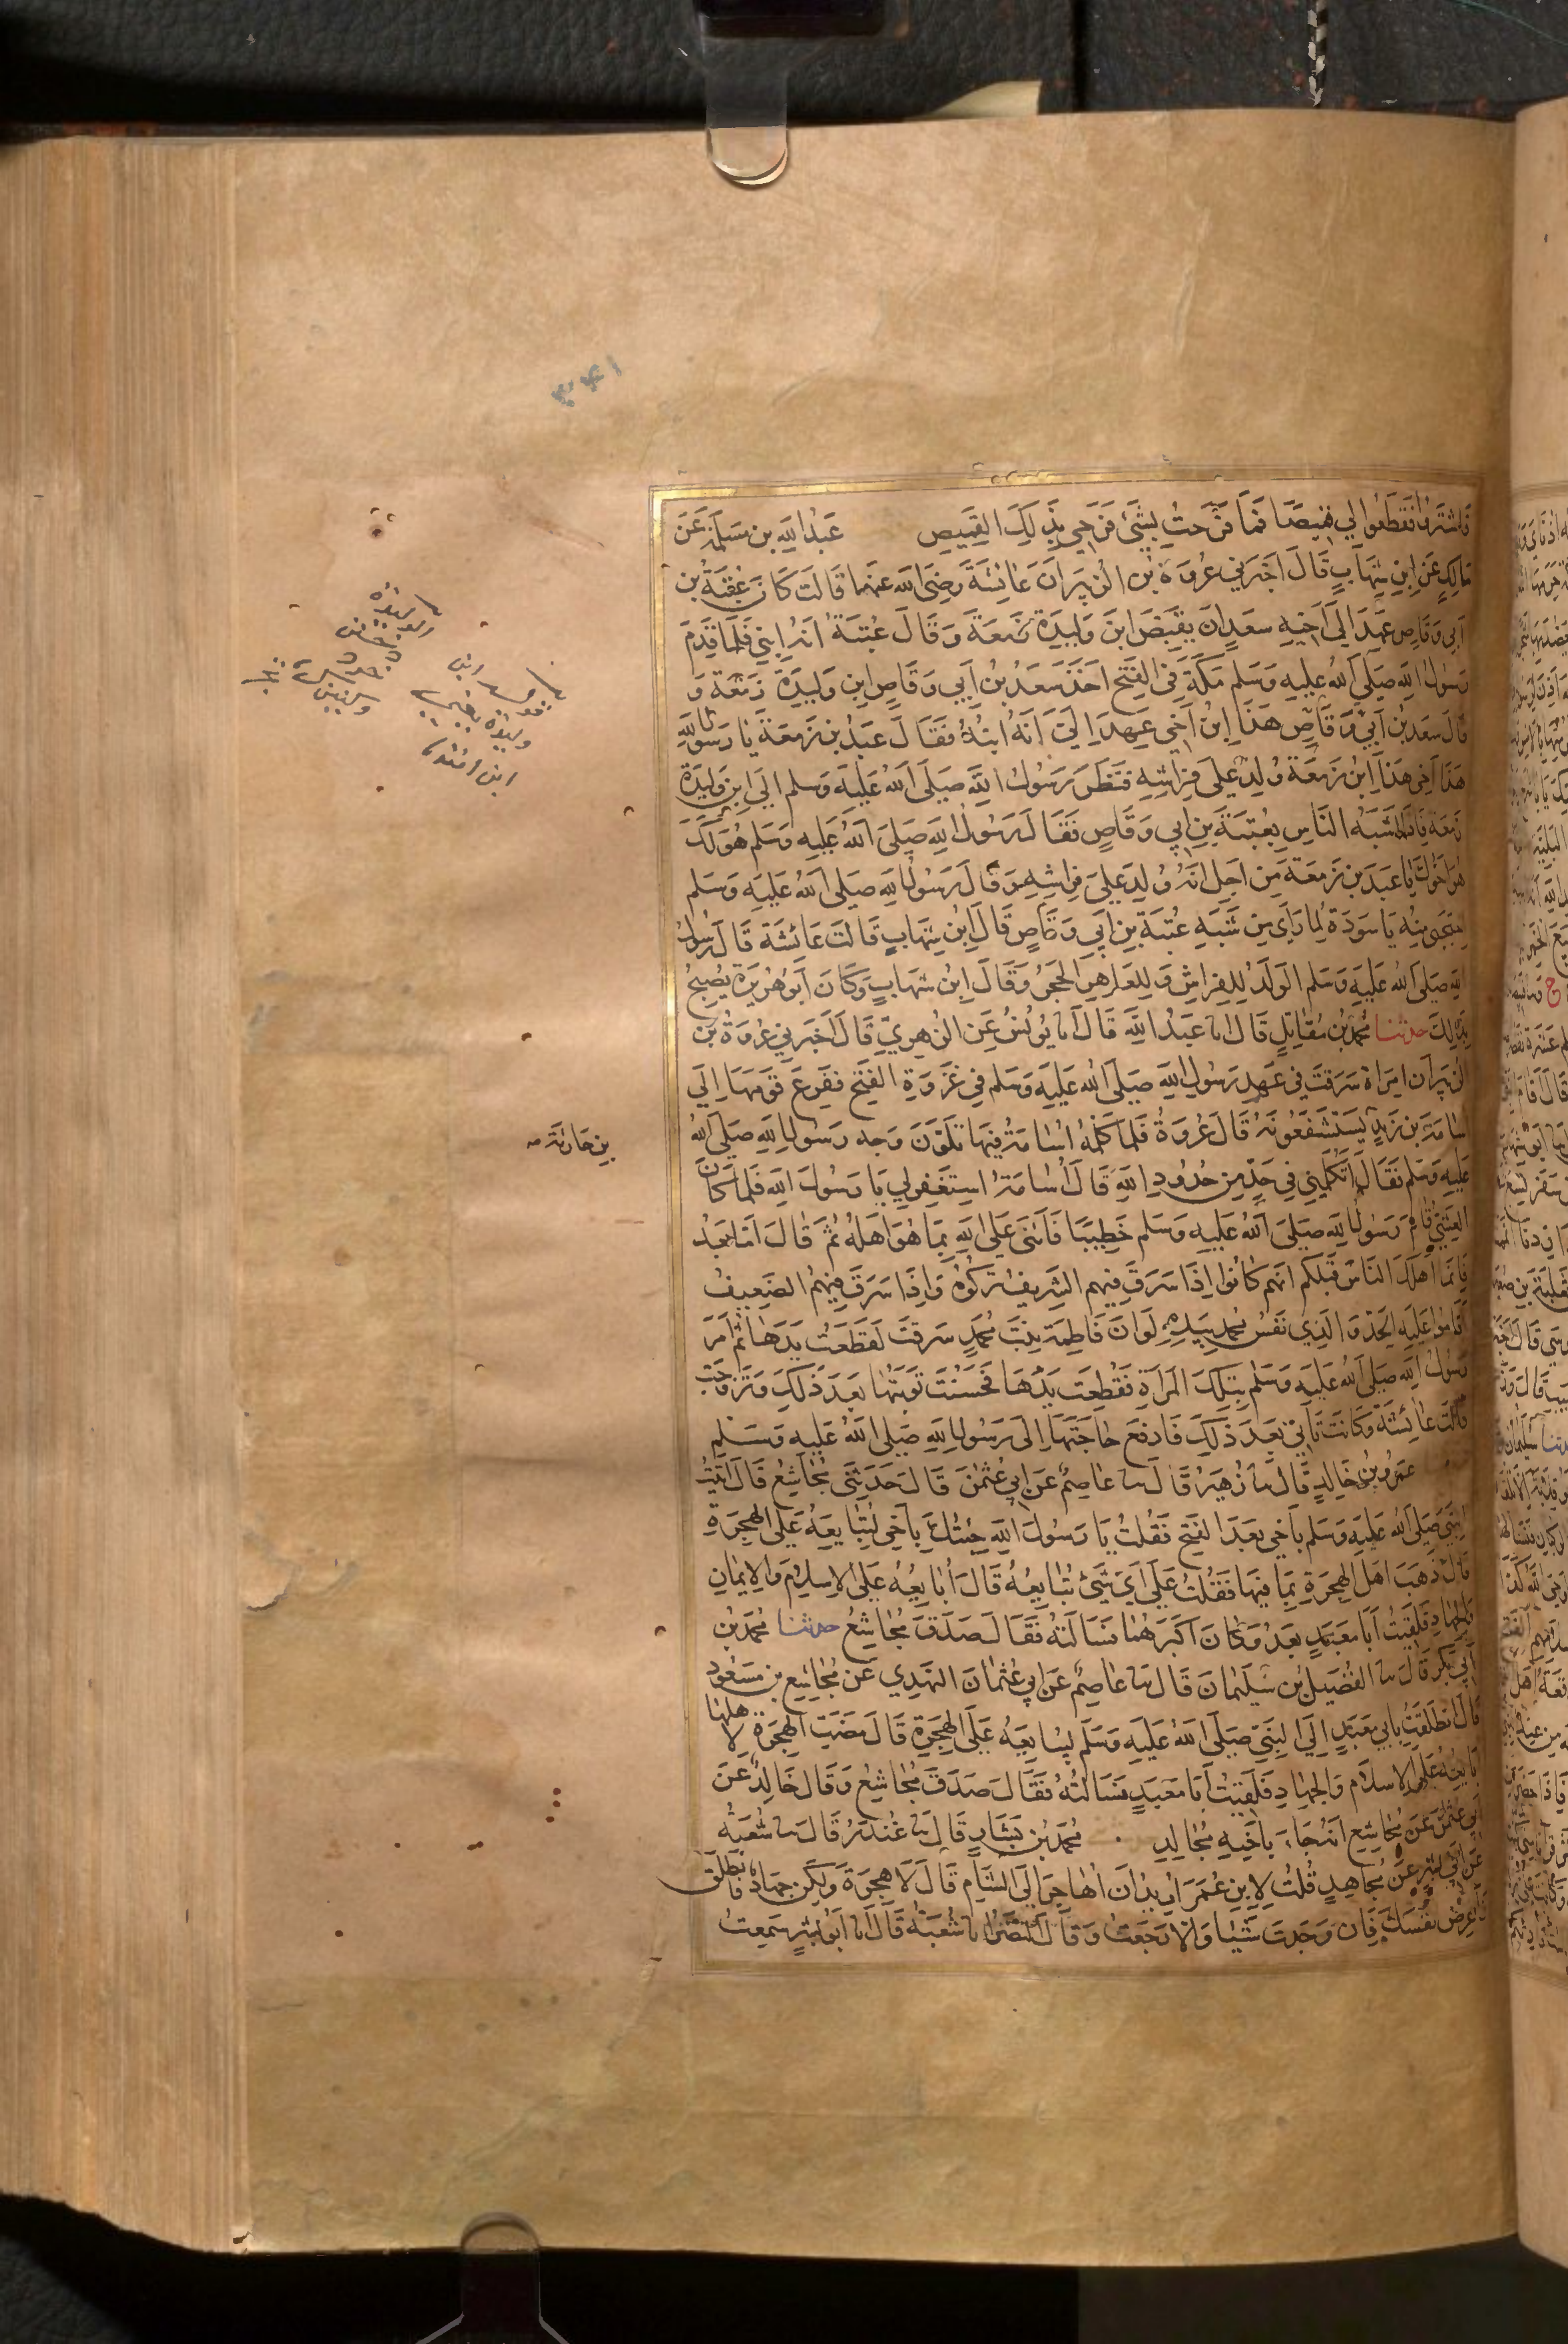 فاشتروا فقطعوا لي قميصًا فما فرحت بشيء فرحي بذلك القميص عبد الله بن مسلمة عن
مالك عن ابن شهاب قال اخبرني عروة بن الزبير ان عائشة رضي الله عنها قالت كان عقبة بن
ابي وقاص عهد الي اخيه سعد ان يقبض ابن وليدة زمعة وقال عتبة انه ابني فلما قدم
رسول الله صلي الله عليه وسلم مكة في الفتح اخذ سعد بن ابي وقاص ابن وليدة زمعة و
قال سعد بن ابي وقاص هذا ابن اخي عهد الي انه ابنه فقال عبد بن زمعة يا رسول الله
هذا اخي هذا ابن زمعة ولد علي فراشه فنظر رسول الله صلي الله عليه وسلم الي ابن وليدة
زمعة فاذا اشبه الناس بعتبة بن ابي وقاص فقال رسول الله صلى الله عليه وسلم هو لك
هو اخوك يا عبد بن زمعة من اجل انه ولد علي فراشه وقال رسول الله صلى الله عليه وسلم
احتجبي منه يا سودة لما راى من شبه عتبة بن ابي وقاص قال ابن شهاب قالت عائشة قال رسول
الله صلى الله عليه وسلم الولد للفراش وللعاهر الحجر وقال ابن شهاب وكان ابو هريرة يصيح
بذلك حدثنا محمد بن مقاتل قال انا عبد الله قال انا يونس عن الزهري قال اخبرني عروة بن
الزبير ان امراة سرقت في عهد رسول الله صلى الله عليه وسلم في غزوة الفتح ففزع قومها الي
اسامة بن زيد يستشفعونه قال عروة فلما كلمه اسامة فيها تلون وجه رسول الله صلى الله
عليه وسلم فقال اتكلمني في حد من حدود الله قال اسامة استغفر لي يا رسول الله فلما كان
العشي قام رسول الله صلى الله عليه وسلم خطيبا فاثنى على الله بما هو اهله ثم قال اما بعد
فانما اهلك الناس قبلكم انهم كانوا اذا سرق فيهم الشريف تركوه واذا سرق فيهم الضعيف
اقاموا عليه الحد والذي نفس محمد بيده لو ان فاطمة بنت محمد سرقت لقطعت يدها ثم امر
رسول الله صلى الله عليه وسلم بتلك المراة فقطعت يدها فحسنت توبتها بعد ذلك وتزوجت
قالت عائشة وكانت تاتي بعد ذلك فارفع حاجتها الى رسول الله صلى الله عليه وسلم
عمرو بن خالد قال ثنا زهير قال ثنا عاصم عن ابي عثمن قال حدثني مجاشع قال اتيت
النبي صلى الله عليه وسلم باخي بعد الفتح فقلت يا رسول الله جئتك باخي لتبايعه على الهجرة
قال ذهب اهل الهجرة بما فيها فقلت علي اي شيئ تبايعه قال ابايعه على الاسلام والايمان
والجهاد فلقيت ابا معبد بعد وكان اكبرهما فسالته فقال صدق مجاشع حدثنا محمد بن
ابي بكر قال ثنا الفضيل بن سليمان قال ثنا عاصم عن ابي عثمان النهدي عن مجاشع بن مسعود
قال انطلقت بابي معبد الي النبي صلى الله عليه وسلم ليبايعه على الهجرة قال مضت الهجرة لاهلها
ابايعه على الاسلام والجهاد فلقيت ابا معبد فسالته فقال صدق مجاشع وقال خالد عن
ابي عثمن عن مجاشع انه جاء باخيه مجالد محمد بن بشار قال ثنا غندر قال ثنا شعبة
عن ابي بشر عن مجاهد قلت لابن عمر اريد ان اهاجر الى الشام قال لا هجرة ولكن جهاد فانطلق
فاعرض نفسك فان وجدت شيئا والا رجعت وقال النضر انا شعبة قال انا ابو بشر سمعت
بن حارثة